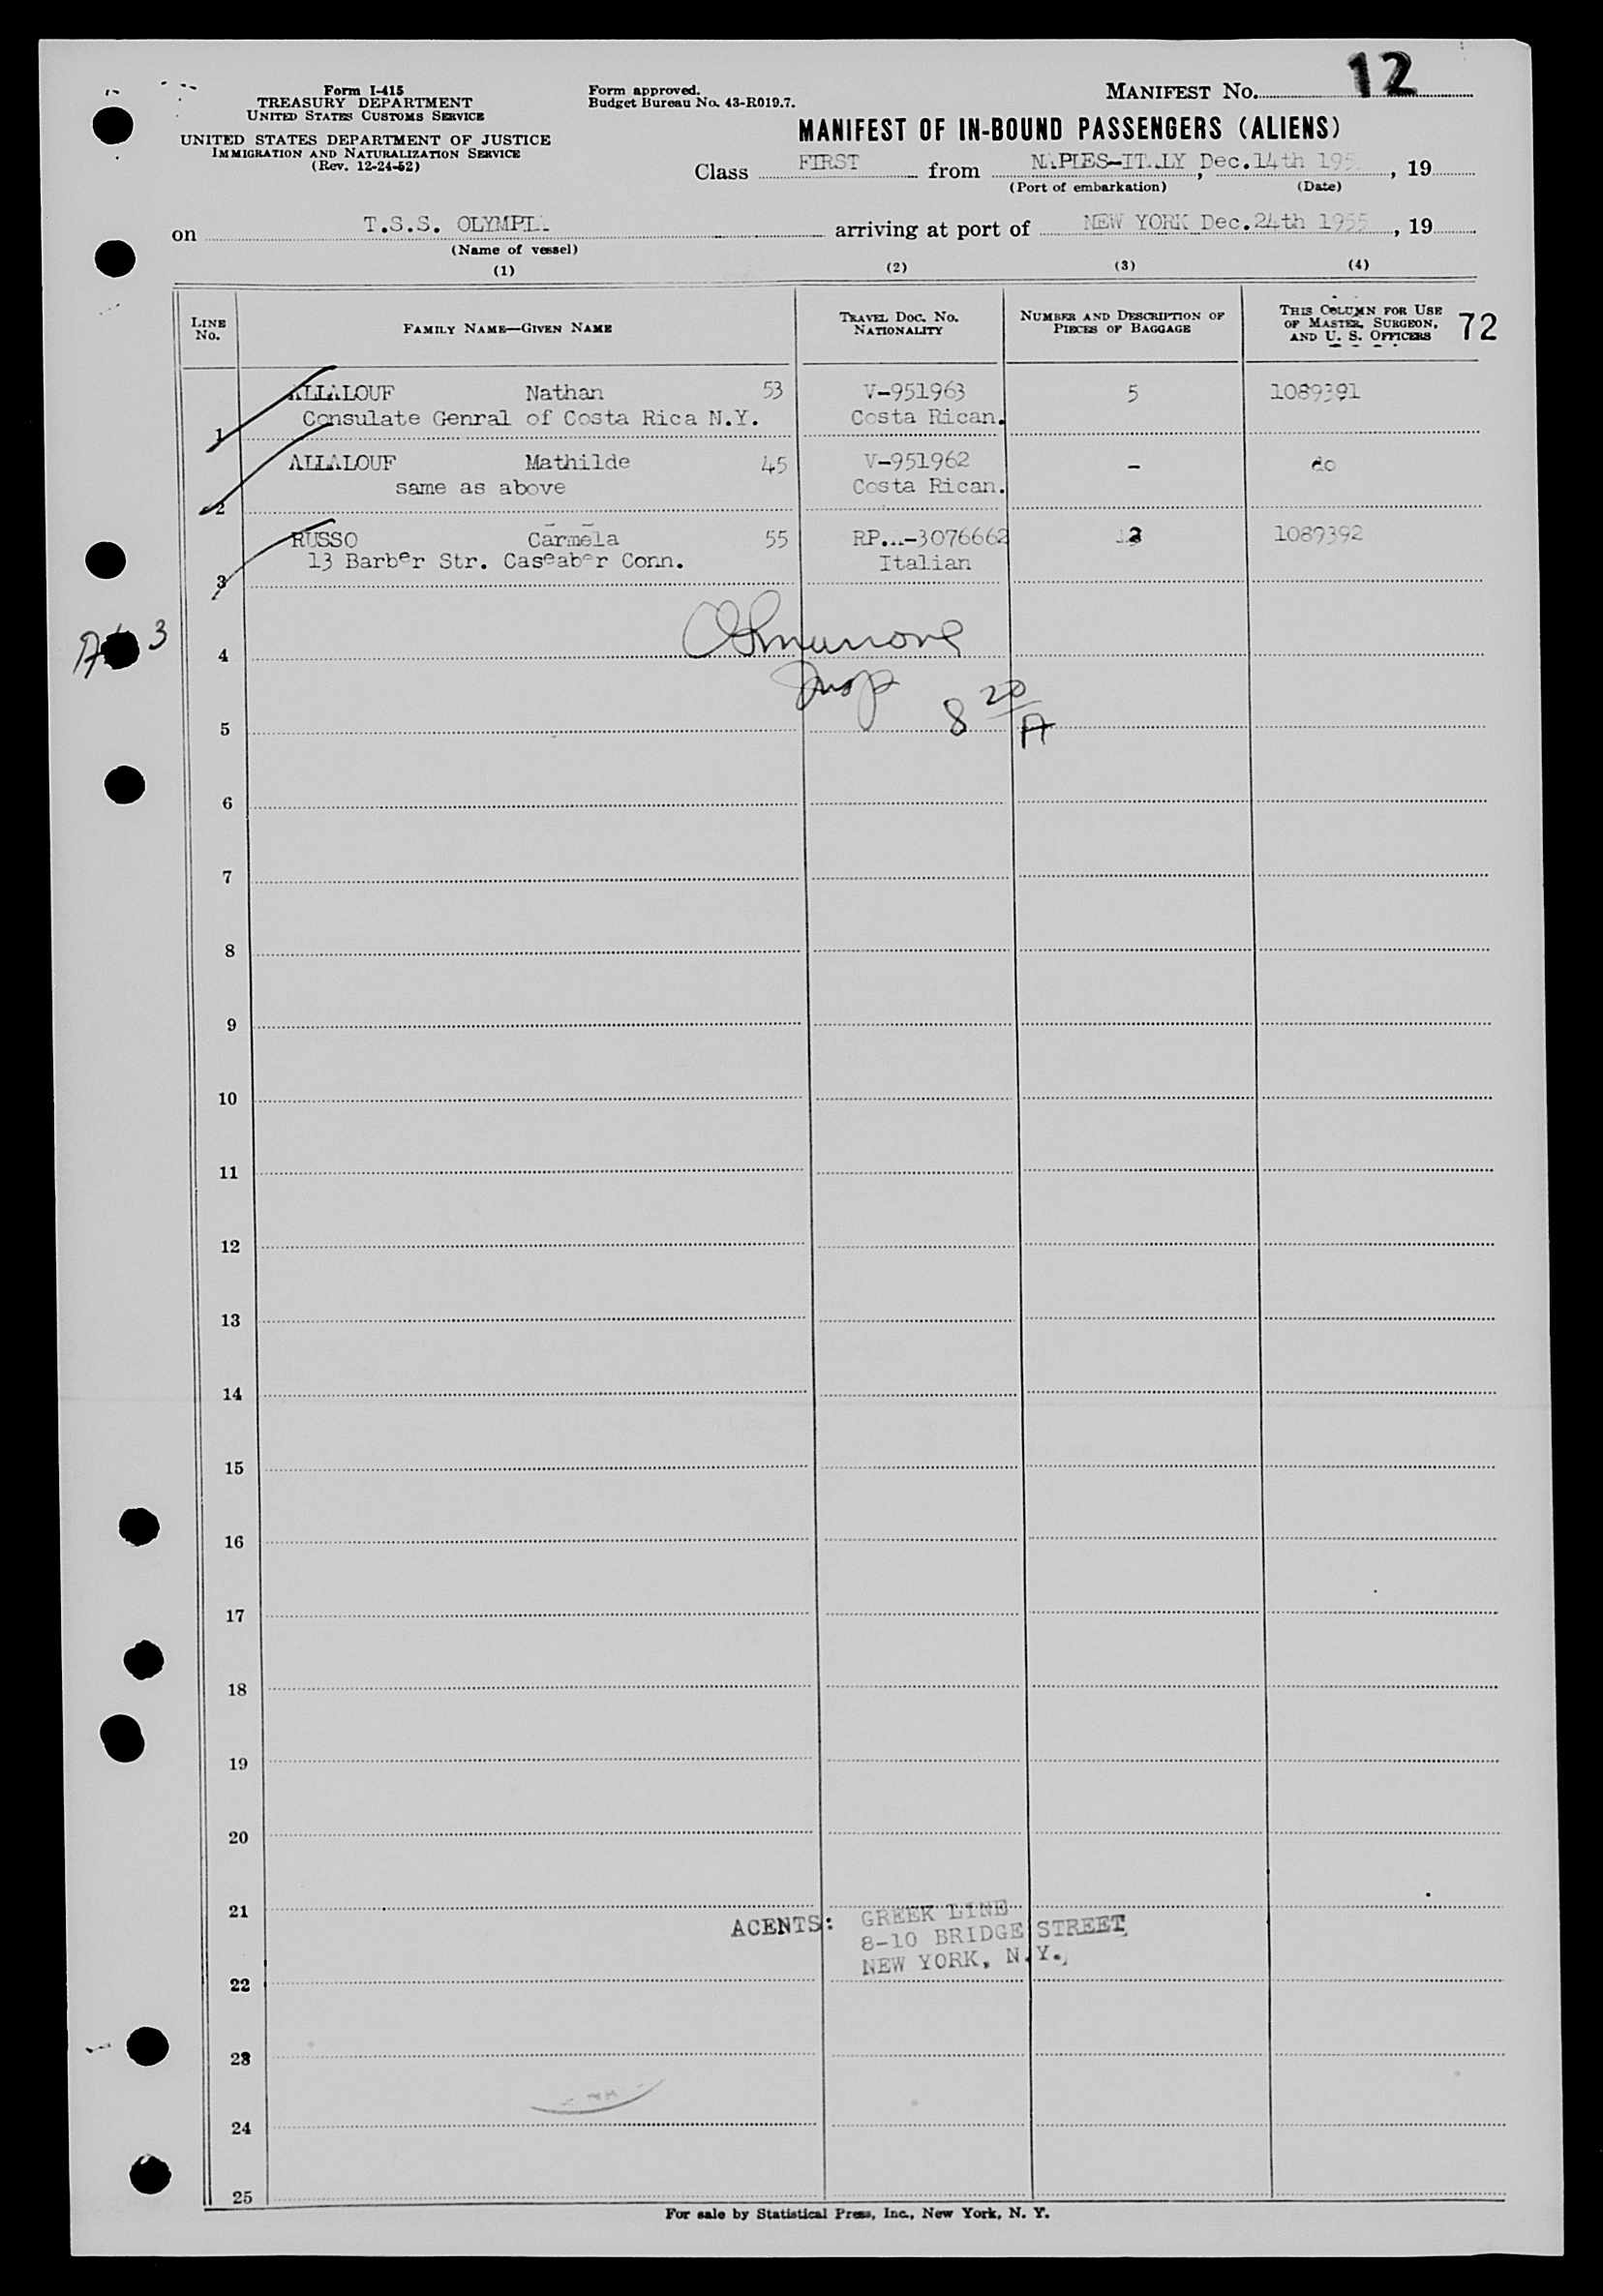 12
Form I-415
TREASURY DEPARTMENT
UNITED STATES CUSTOMS SERVICE
UNITED STATES DEPARTMENT OF JUSTICE
IMMIGRATION AND NATURALIZATION SERVICE
(Rev. 12-24-52)
Form approved.
Budget Bureau No. 43-R019.7.
MANIFEST NO.
MANIFEST OF IN-BOUND PASSENGERS (ALIENS)
Class FIRST from NAPLES-ITALY, Dec.14th 195 , 19
(Port of embarkation) (Date)
on T.S.S. OLYMPIA arriving at port of NEW YORK Dec.24th 1955, 19
(Name of vessel)
(1) (2) (3) (4)
LINE No. FAMILY NAME—GIVEN NAME TRAVEL DOC. NO. NATIONALITY NUMBER AND DESCRIPTION OF PIECES OF BAGGAGE THIS COLUMN FOR USE OF MASTER, SURGEON, AND U. S. OFFICERS 72
ALLALOUF Nathan 53 V-951963 5 1089391
1 Consulate Genral of Costa Rica N.Y. Costa Rican.
ALLALOUF Mathilde 45 V-951962 - do
2 same as above Costa Rican.
RUSSO Carmela 55 -3076662 1089392
3 13 Barber Str. Caseaber Conn. Italian
3
4
Insp
8 20/A
5
6
7
8
9
10
11
12
13
14
15
16
17
18
19
20
21
ACENTS: GREEK LINE
8-10 BRIDGE STREET
NEW YORK, N.Y.
22
23
24
25
For sale by Statistical Press, Inc., New York, N. Y.